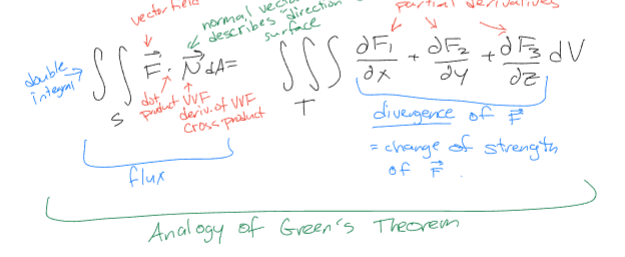 vector field
normal vec
describes "direction
surface
partial derivatives
double
integral
∬ F⃗ · N⃗ dA =
S
∭ ∂F₁/∂x + ∂F₂/∂y + ∂F₃/∂z dV
T
dot
product
VVF
deriv. of VVF
cross product
flux
divergence of F⃗
= change of strength
of F⃗
Analogy of Green's Theorem